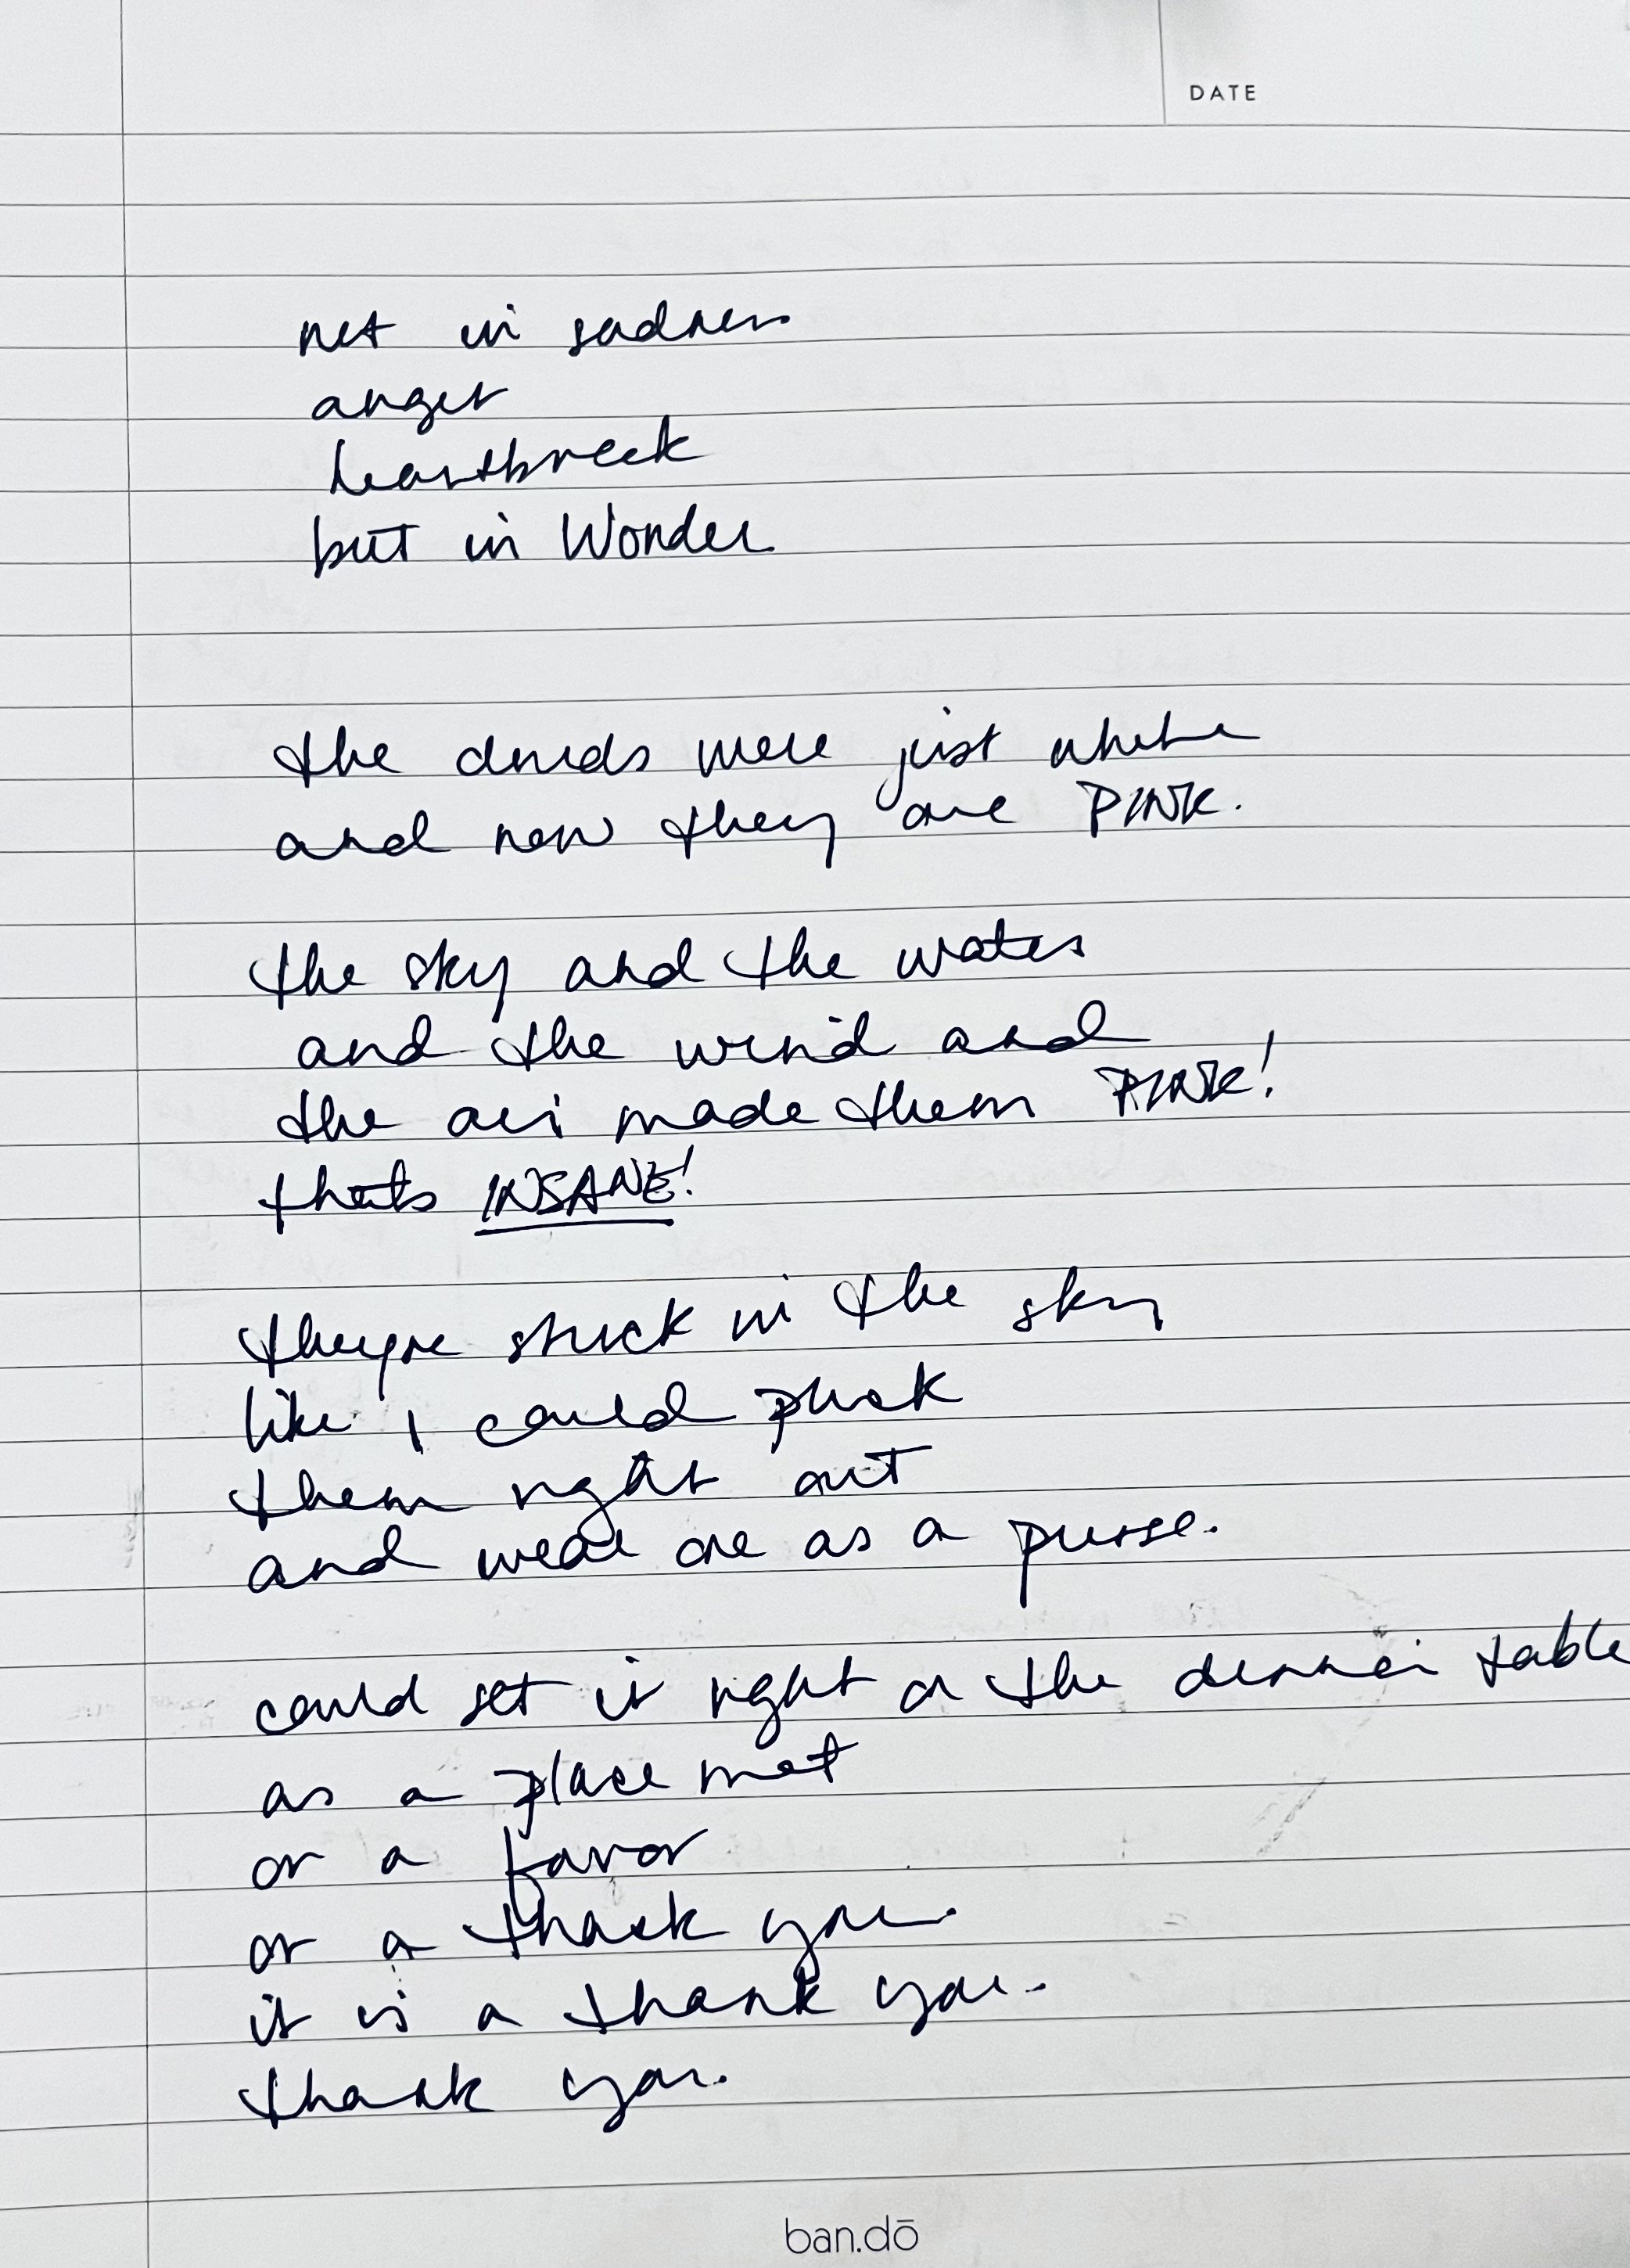 DATE
not in sadness
anger
heartbreak
but in Wonder.
the clouds were just white
and now they are PINK.
the sky and the water
and the wind and
the air made them PINK!
thats INSANE!
theyre stuck in the sky
like I could pluck
them right out
and wear one as a purse.
could set it right on the dinner table
as a place mat
or a favor
or a thank you.
it is a thank you.
thank you.
ban.dō